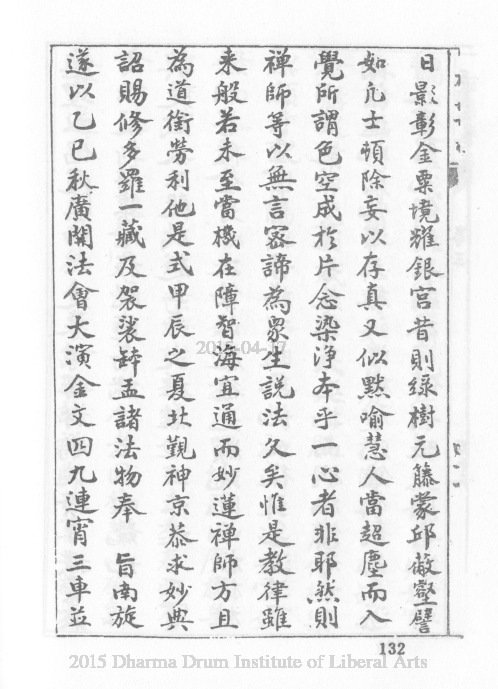 日影彰金粟境耀銀宮昔則綠樹元藤蒙邱蔽壑譬
如凢士頓除妄以存真又似黙喻慧人當超塵而入
覺所謂色空成於片念染淨夲乎一心者非耶然則
禅師等以無言宻諦為衆生説法久矣惟是教律雖
来般若未至當機在障智海宜通而妙蓮禅師方且
為道銜勞利他是式甲辰之夏北觐神京恭求妙典
詔賜修多羅一藏及袈裟缽盂諸法物奉 旨南旋
遂以乙巳秋廣開法會大演金文四九連宵三車並
132
2015-04-17
2015 Dharma Drum Institute of Liberal Arts